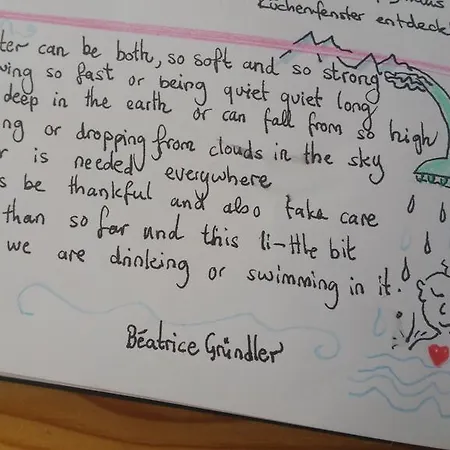 Küchenfenster entdeck
ter can be both, so soft and so strong
ing so fast or being quiet quiet long
deep in the earth or can fall from so high
ng or dropping from clouds in the sky
r is needed everywhere
s be thankful and also take care
than so far and this li-ttle bit
we are drinking or swimming in it.
Béatrice Gründler